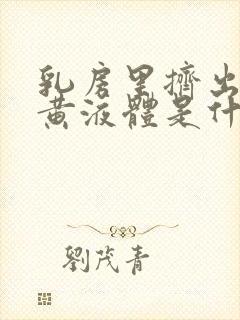 乳房里擠出
黄液體是什
劉茂青